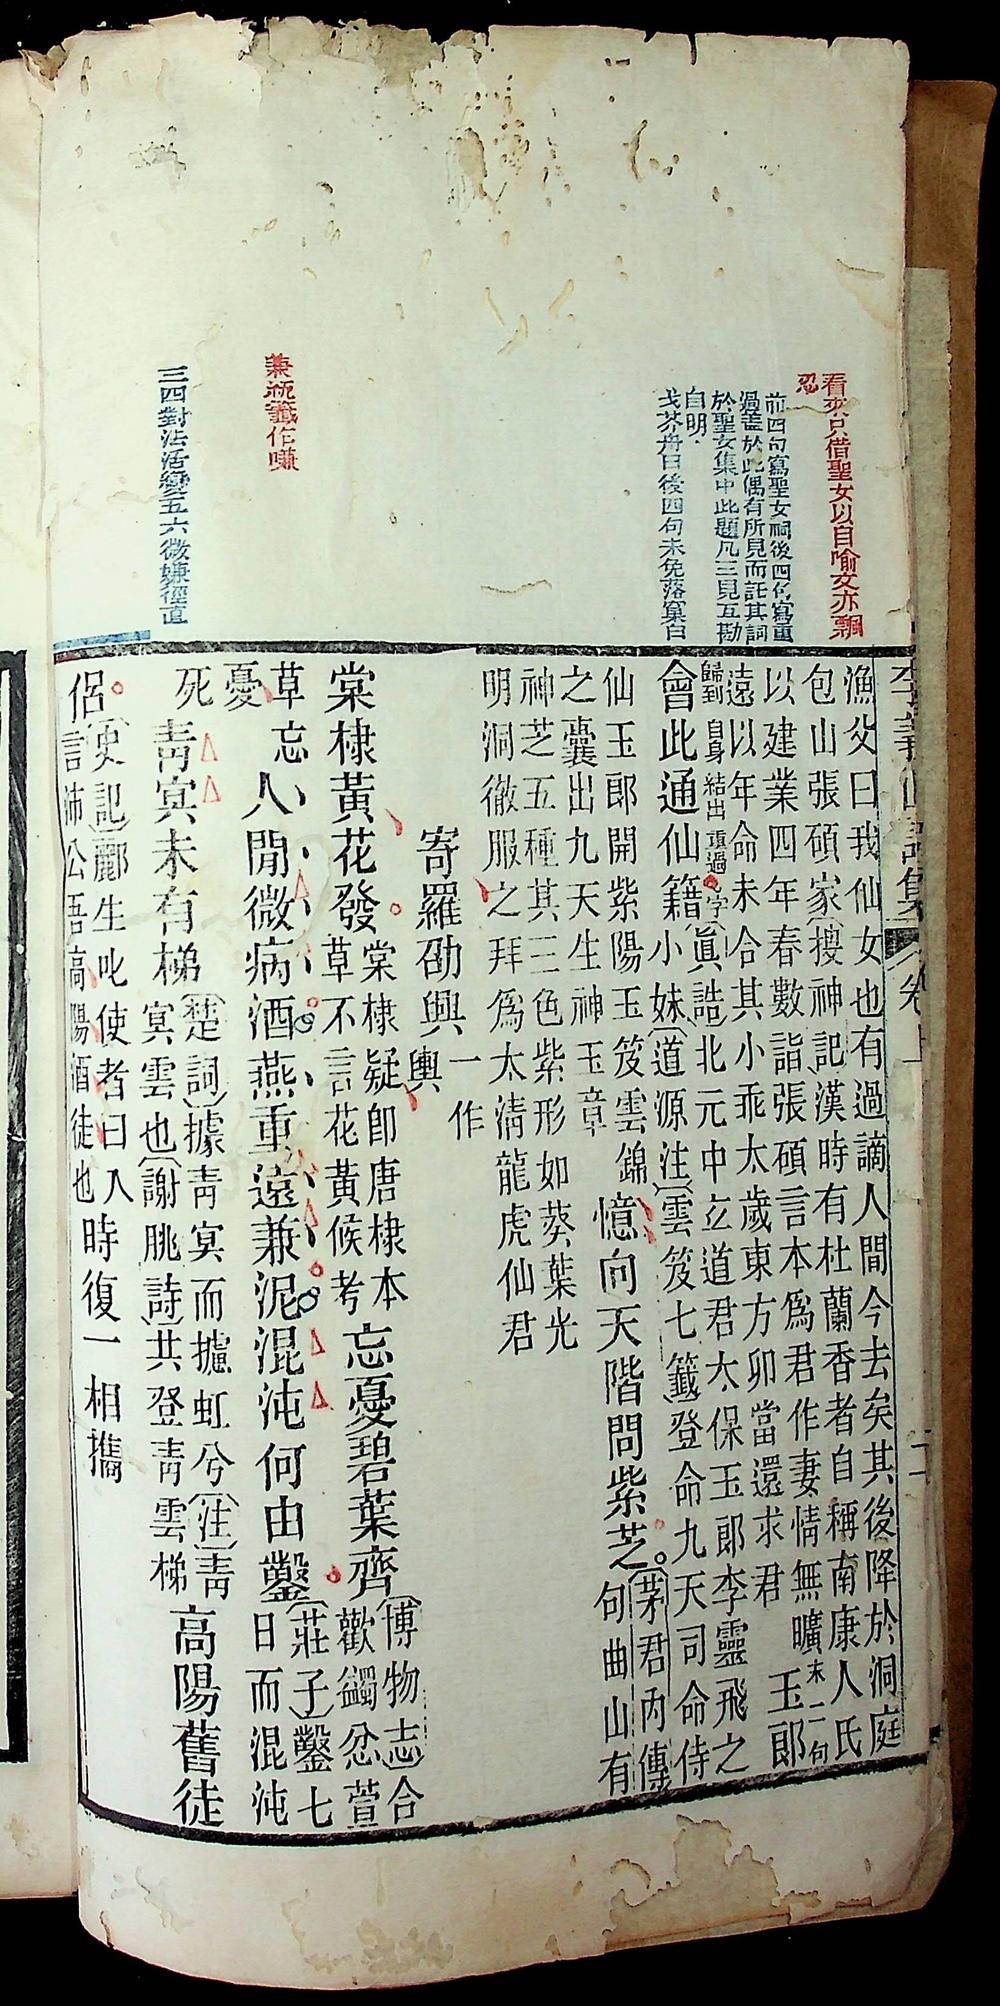 看來只借聖女以自喻文亦飄
忽
前四句寫聖女祠後四句寫重
過盖於此偶有所見而託其詞
於聖女集中此題凡三見互勘
自明
戈芥舟曰後四句未免落窠臼
兼統籤作嗛
三四對法活變五六微嫌徑直
李義山詩集 卷上
漁父曰我仙女也有過謫人間今去矣其後降於洞庭
包山張碩家(搜神記)漢時有杜蘭香者自稱南康人氏
以建業四年春數詣張碩言本爲君作妻情無曠
遠以年命未合其小乖太歲東方卯當還求君
玉郎
末二句歸到自身結出重過字
會此通仙籍
(眞誥)北元中玄道君太保玉郎李靈飛之
小妹(道源注)雲笈七籤登命九天司命侍
仙玉郎開紫陽玉笈雲錦
之囊出九天生神玉章
憶向天階問紫芝
(茅君內傳)句曲山有
神芝五種其三色紫形如葵葉光
明洞徹服之拜爲太清龍虎仙君
寄羅劭輿
輿一作興
棠棣黃花發
棠棣疑卽唐棣本
草不言花黃候考
忘憂碧葉齊
(博物志)合歡蠲忿萱
草忘憂
人閒微病酒燕重遠兼泥混沌何由鑿
(莊子)鑿七日而混沌
死
青冥未有梯
(楚詞)據青冥而攄虹兮(注)青
冥雲也(謝朓詩)共登青雲梯
高陽舊徒
侶
(史記)酈生叱使者曰入
言沛公吾高陽酒徒也
時復一相攜